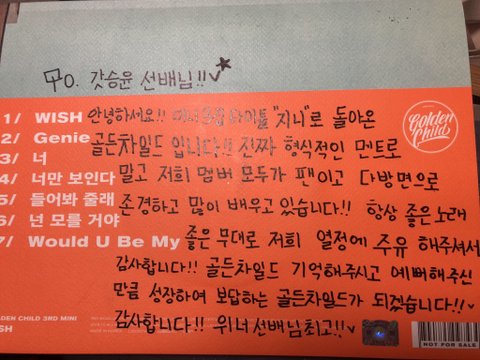 To. 갓승윤 선배님!!
안녕하세요!! 미니 타이틀 "지니"로 돌아온
골든차일드 입니다!! 진짜 형식적인 멘트로
말고 저희 멤버 모두가 팬이고 다방면으로
존경하고 많이 배우고 있습니다!! 항상 좋은 노래
좋은 무대로 저희 열정에 주유 해주셔서
감사합니다!! 골든차일드 기억해주시고 예뻐해주신
만큼 성장하여 보답하는 골든차일드가 되겠습니다!!
감사합니다!! 위너 선배님최고!!
1/ WISH
2/ Genie
3/ 너
4/ 너만 보인다
5/ 들어봐 줄래
6/ 넌 모를 거야
7/ Would U Be My
Golden
Child
LDEN CHILD 3RD MINI
ISH
NOT FOR SALE